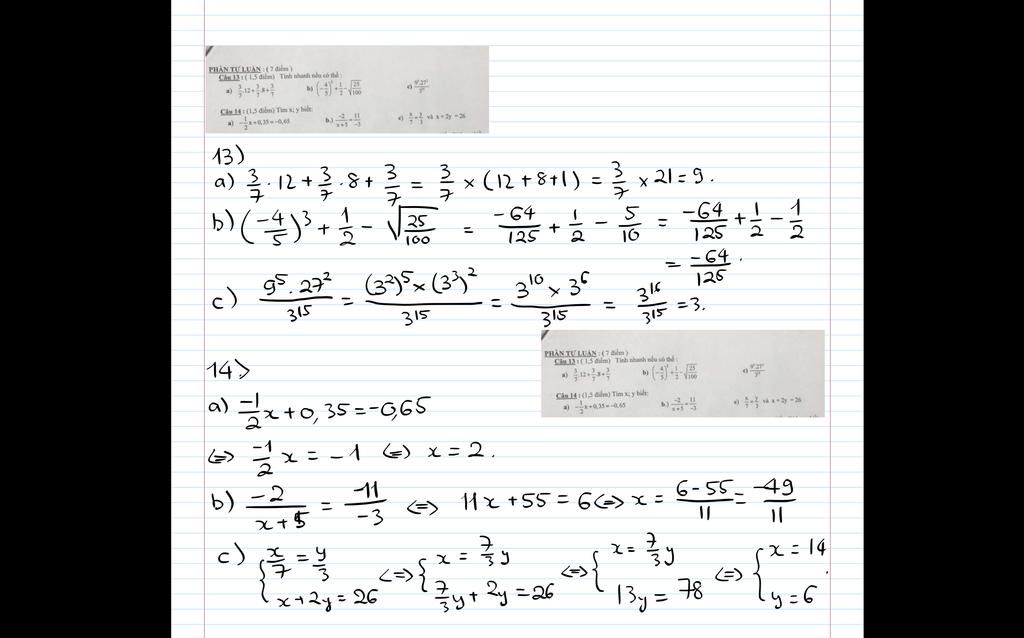 PHẦN TỰ LUẬN : ( 7 điểm )
Câu 13 : ( 1,5 điểm) Tính nhanh nếu có thể :
a) 3/7 .12 + 3/7 .8 + 3/7 b) (-4/5)³ + 1/2 - √(25/100) c)
Câu 14 : (1,5 điểm) Tìm x; y biết:
a) -1/2 x + 0,35 = -0,65 b.) -2/(x+5) = 11/-3 c) x/7 = y/3 và x + 2y = 26
13)
a) 3/7 . 12 + 3/7 . 8 + 3/7 = 3/7 × (12 + 8 + 1) = 3/7 × 21 = 9.
b) (-4/5)³ + 1/2 - √(25/100) = -64/125 + 1/2 - 5/10 = -64/125 + 1/2 - 1/2
= -64/125.
c) 9⁵ . 27² / 3¹⁵ = (3²)⁵ × (3³)² / 3¹⁵ = 3¹⁰ × 3⁶ / 3¹⁵ = 3¹⁶ / 3¹⁵ = 3.
PHẦN TỰ LUẬN : ( 7 điểm )
Câu 13 : ( 1,5 điểm) Tính nhanh nếu có thể :
a) 3/7 .12 + 3/7 .8 + 3/7 b) (-4/5)³ + 1/2 - √(25/100) c)
Câu 14 : (1,5 điểm) Tìm x; y biết:
a) -1/2 x + 0,35 = -0,65 b.) -2/(x+5) = 11/-3 c) x/7 = y/3 và x + 2y = 26
14)
a) -1/2 x + 0,35 = -0,65
⇔ -1/2 x = -1 ⇔ x = 2.
b) -2/(x+5) = -11/-3 ⇔ 11x + 55 = 6 ⇔ x = (6-55)/11 = -49/11
c) { x/7 = y/3 ⇔ { x = 7/3 y ⇔ { x = 7/3 y ⇔ { x = 14
x + 2y = 26 7/3 y + 2y = 26 13y = 78 y = 6.